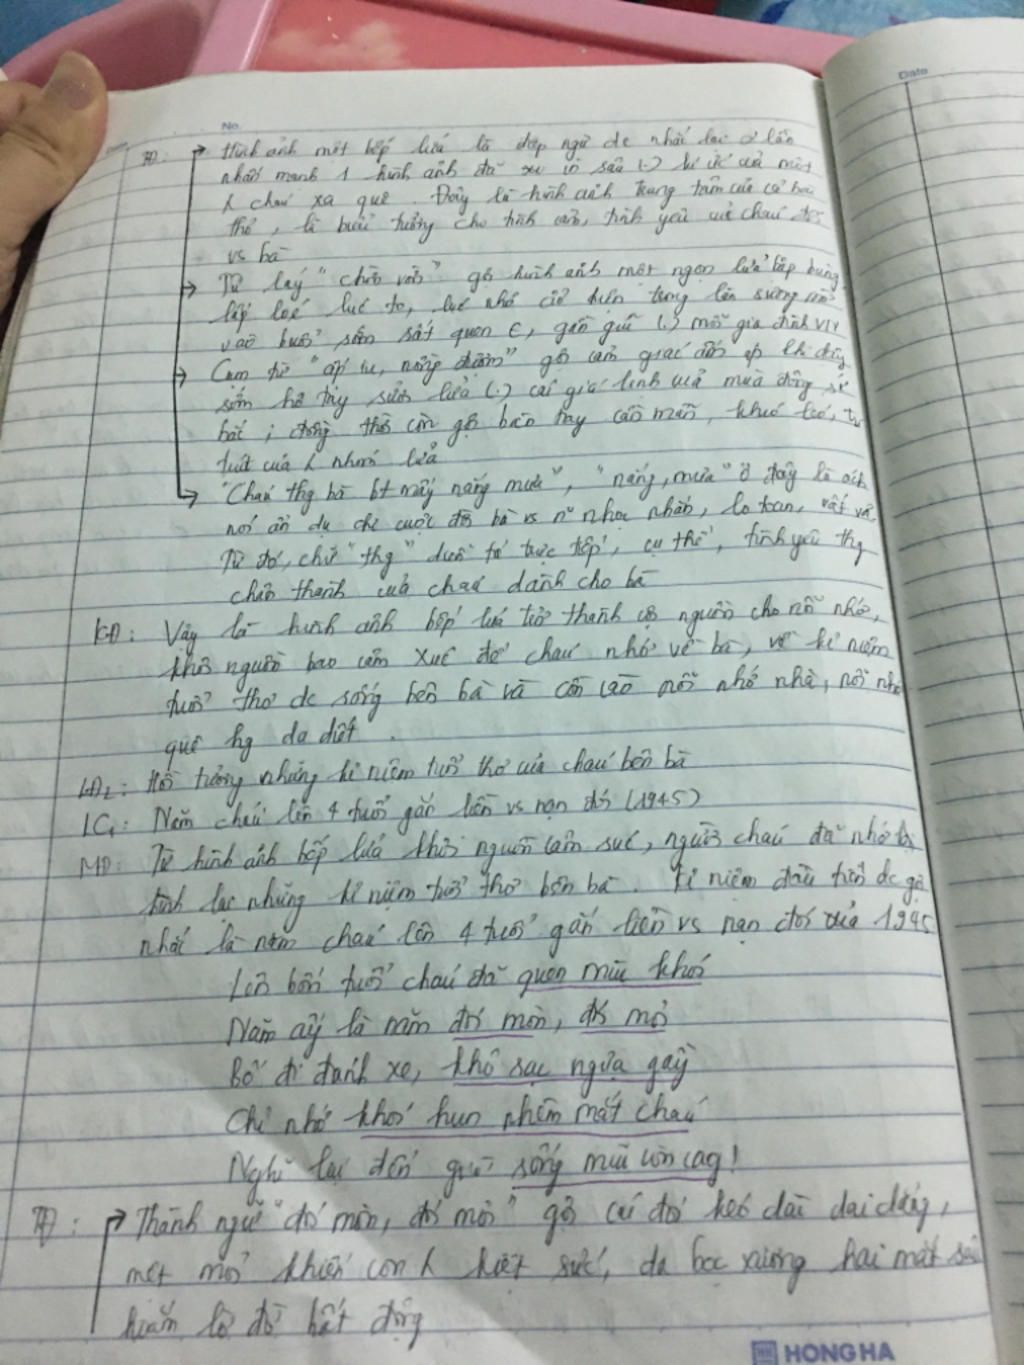 No.
Date
TĐ: → Hình ảnh một bếp lửa là điệp ngữ dc nhắc lại 2 lần
nhấn mạnh 1 hình ảnh đã in sâu (.) kí ức của một
cháu xa quê. Đây là hình ảnh trung tâm của cả bài
thơ, là biểu tượng cho tình cảm, tình yêu của cháu
vs bà
→ Từ láy "chờn vờn" gợi hình ảnh một ngọn lửa bập bùng,
lập loè lúc to, lúc nhỏ cứ hiển trong làn sương
vào buổi sớm rất quen €, gần gũi (.) mỗi gia đình VN
→ Cụm từ "ấp iu, nồng đượm" gợi cảm giác ấm áp khi
sớm hơ tay sưởi lửa (.) cái giá lạnh của mùa đông
bắc; đồng thời còn gợi bàn tay cần mẫn, khéo léo,
của nhóm lửa
→ "Cháu thg bà bt mấy nắng mưa", "nắng, mưa" ở đây là cách
nói ẩn dụ chỉ cuộc đời bà vs nhọc nhằn, lo toan, vất vả.
Từ đó, chữ "thg" trực tiếp, cụ thể, tình yêu thg
chân thành của cháu dành cho bà
KĐ: Vậy là hình ảnh bếp lửa trở thành cội nguồn cho nỗi nhớ,
khơi nguồn bao cảm xúc để cháu nhớ về bà, về kỉ niệm
tuổi thơ dc sống bên bà và còn nỗi nhớ nhà, nỗi nhớ
quê hg da diết.
LĐ2: Hồi tưởng những kỉ niệm tuổi thơ của cháu bên bà
LC1: Năm cháu lên 4 tuổi gắn liền vs nạn đói (1945)
MĐ: Từ hình ảnh bếp lửa khơi nguồn cảm xúc, người cháu đã nhớ
lại những kỉ niệm tuổi thơ bên bà. Kỉ niệm đầu tiên dc
nhắc là năm cháu lên 4 tuổi gắn liền vs nạn đói của 1945
Lên bốn tuổi cháu đã quen mùi khói
Năm ấy là năm đói mòn, đói mỏi
Bố đi đánh xe, khô rạc ngựa gầy
Chỉ nhớ khói hun nhèm mắt cháu
Nghĩ lại đến giờ sống mũi còn cay!
TĐ: → Thành ngữ "đói mòn, đói mỏi" gợi cái đói kéo dài dai dẳng,
mệt mỏi khiến con kiệt sức, da bọc xương hai mắt sâu
hoắm lờ đờ bất động
HONG HA